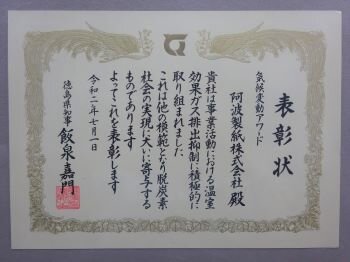 表彰状
気候変動アワード
阿波製紙株式会社 殿
貴社は事業活動における温室
効果ガス排出抑制に積極的に
取り組まれました
これは他の模範となり脱炭素
社会の実現に大いに寄与する
ものであります
よってこれを表彰します
令和二年七月一日
徳島県知事 飯泉嘉門